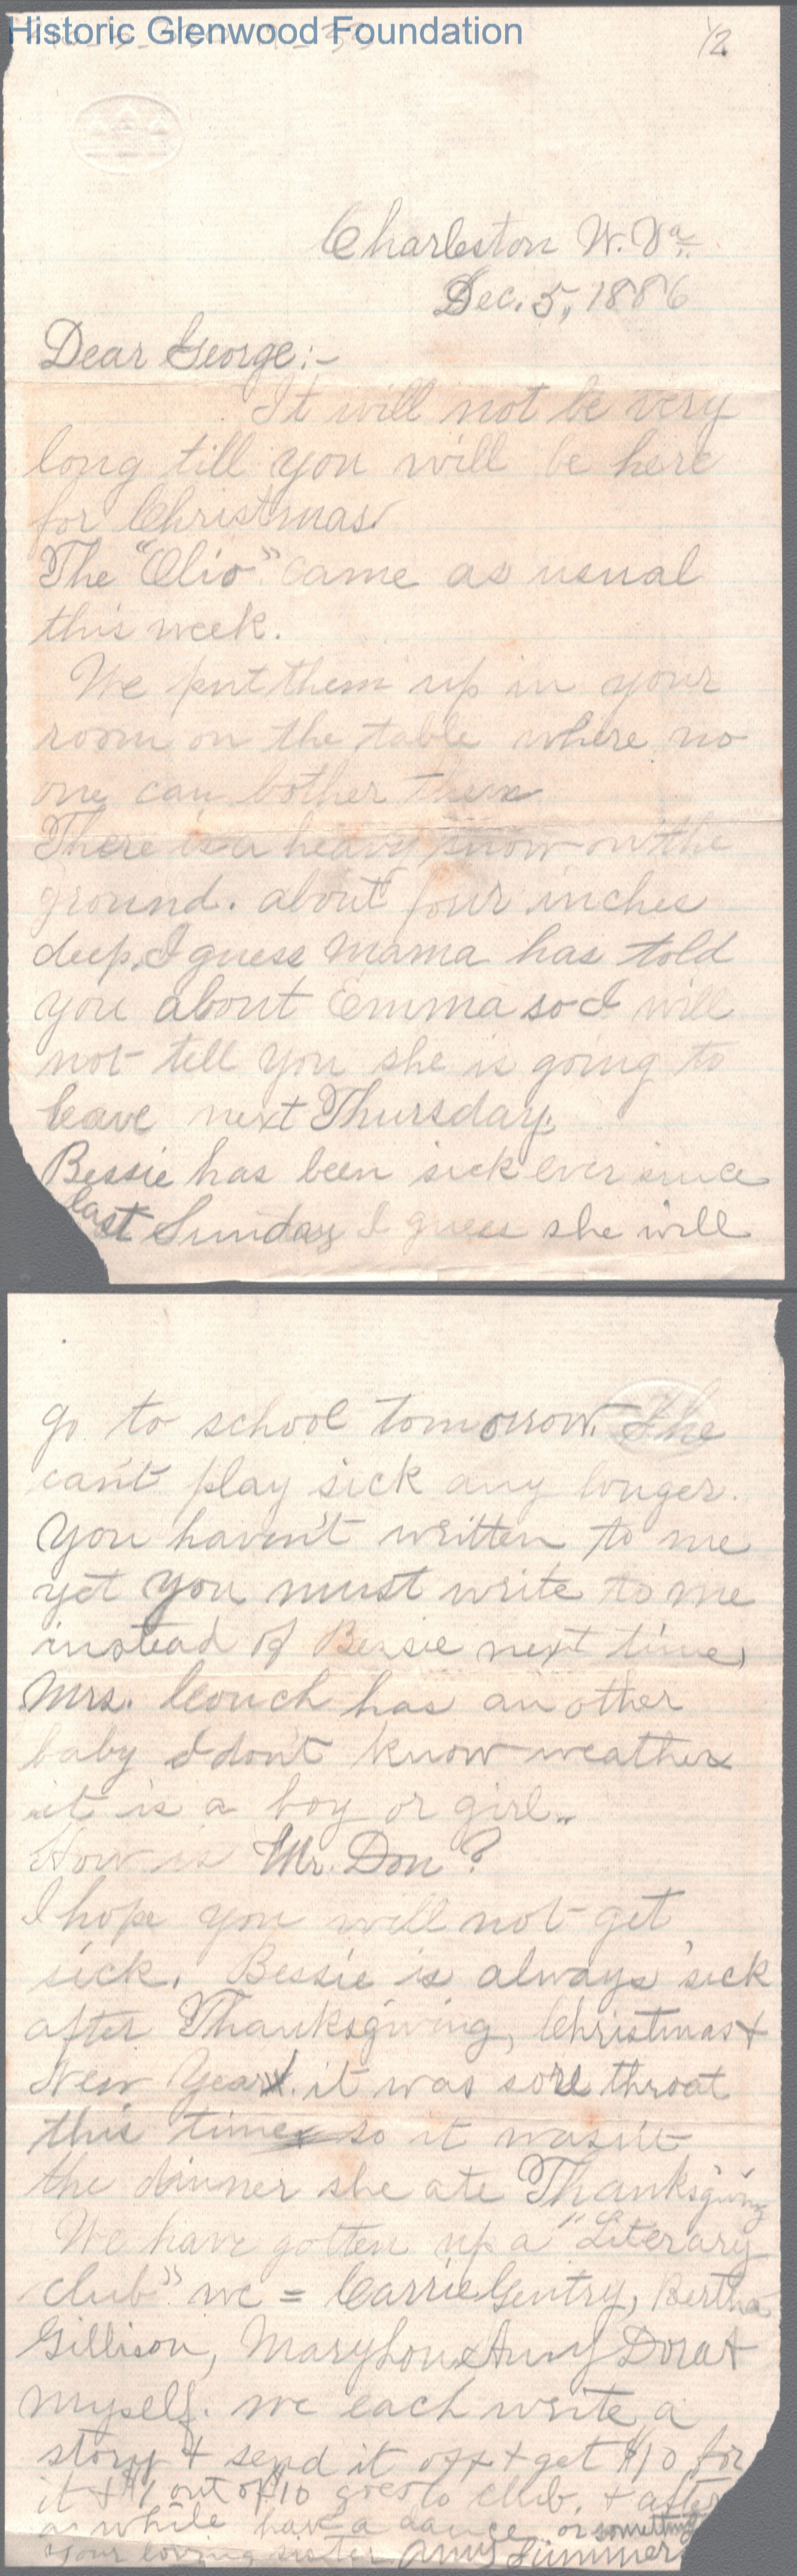 Historic Glenwood Foundation
1/2
Charleston W. Va.
Dec. 5, 1886
Dear George:-
It will not be very
long till you will be here
for Christmas.
The "Olio" came as usual
this week.
We put them up in your
room on the table where no
one can bother them
There is a heavy snow on the
ground. about four inches
deep. I guess Mama has told
you about Emma so I will
not tell you she is going to
leave next Thursday.
Bessie has been sick ever since
last Sunday I guess she will
go to school tomorrow. She
can't play sick any longer.
You haven't written to me
yet you must write to me
instead of Bessie next time,
Mrs. Couch has another
baby I don't know weather
it is a boy or girl..
How is Mr. Don?
I hope you will not get
sick. Bessie is always sick
after Thanksgiving, Christmas +
New Year. it was sore throat
this time so it wasn't
the dinner she ate Thanksgiving
We have gotten up a "Literary
club" we = Carrie Gentry, Bertha
Gillison, Mary Lou Dora +
myself. we each write a
story + send it off + get $10 for
it + $1 out of $10 goes to club. + after
a while have a dance or something
your loving sister Amy Summers